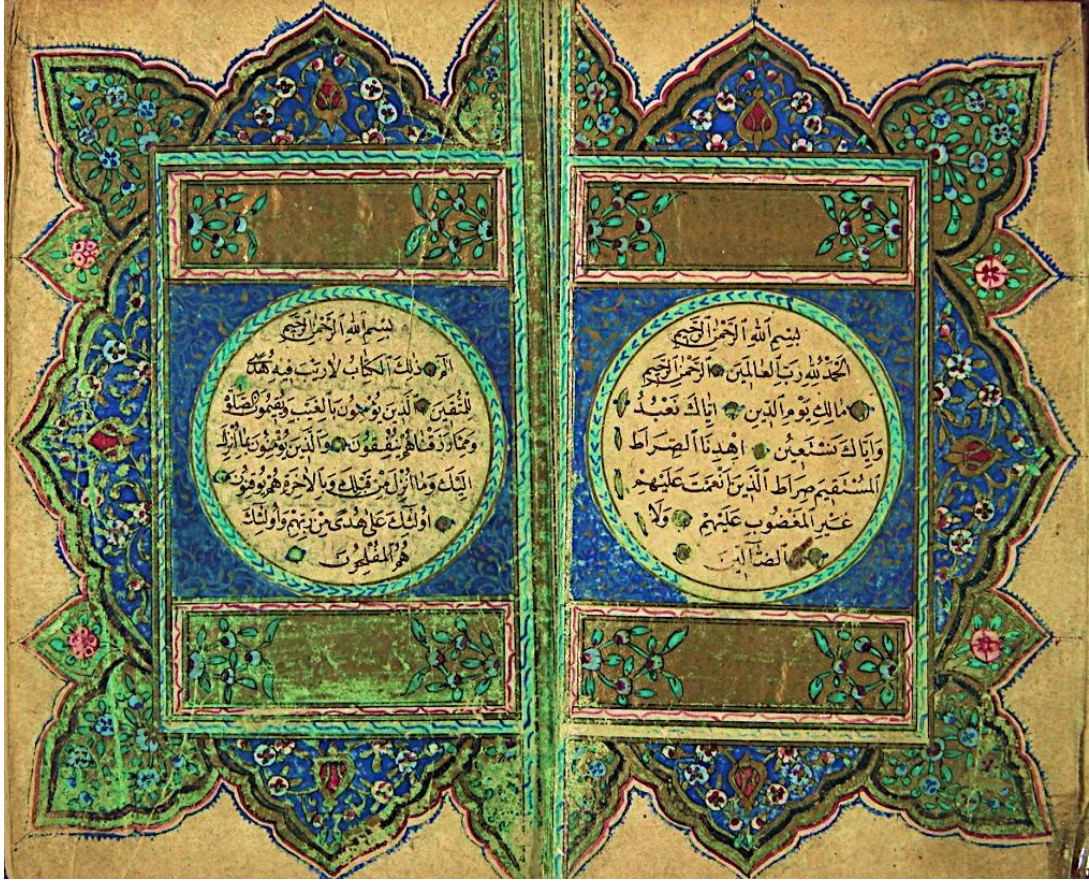 بِسْمِ اللهِ الرَّحْمٰنِ الرَّحِيمِ
اَلْحَمْدُ لِلّٰهِ رَبِّ الْعَالَمِينَ الرَّحْمٰنِ الرَّحِيمِ
مَالِكِ يَوْمِ الدِّينِ اِيَّاكَ نَعْبُدُ
وَاِيَّاكَ نَسْتَعِينُ اِهْدِنَا الصِّرَاطَ
الْمُسْتَقِيمَ صِرَاطَ الَّذِينَ اَنْعَمْتَ عَلَيْهِمْ
غَيْرِ الْمَغْضُوبِ عَلَيْهِمْ وَلَا
الضَّالِّينَ
بِسْمِ اللهِ الرَّحْمٰنِ الرَّحِيمِ
الم ذٰلِكَ الْكِتَابُ لَا رَيْبَ فِيهِ هُدًى
لِلْمُتَّقِينَ الَّذِينَ يُؤْمِنُونَ بِالْغَيْبِ وَيُقِيمُونَ الصَّلٰوةَ
وَمِمَّا رَزَقْنَاهُمْ يُنْفِقُونَ وَالَّذِينَ يُؤْمِنُونَ بِمَا اُنْزِلَ
اِلَيْكَ وَمَا اُنْزِلَ مِنْ قَبْلِكَ وَبِالْاٰخِرَةِ هُمْ يُوقِنُونَ
اُولٰئِكَ عَلٰى هُدًى مِنْ رَبِّهِمْ وَاُولٰئِكَ
هُمُ الْمُفْلِحُونَ